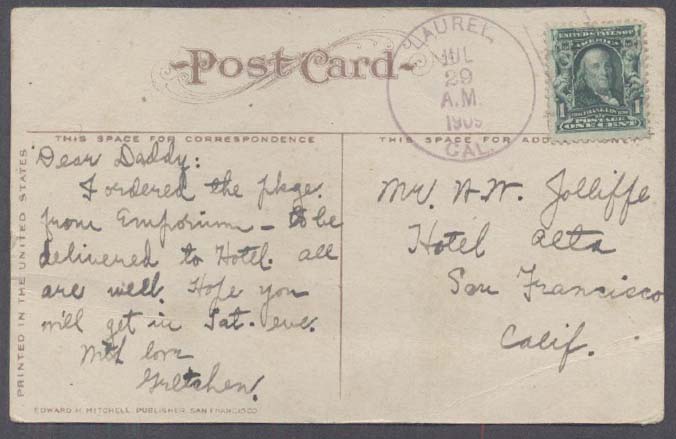 Post Card
LAUREL,
JUL
29
A.M.
1909
CAL.
UNITED STATES OF AMERICA
1 1
FRANKLIN
POSTAGE
ONE CENT
THIS SPACE FOR CORRESPONDENCE
THIS SPACE FOR ADD
PRINTED IN THE UNITED STATES
Dear Daddy:
I ordered the pkge.
from Emporium - to be
delivered to Hotel. all
are well. Hope you
will get in Sat. eve.
With love
Gretchen.
Mr. H.W. Jolliffe
Hotel Alta
San Francisco
Calif.
EDWARD H. MITCHELL, PUBLISHER, SAN FRANCISCO